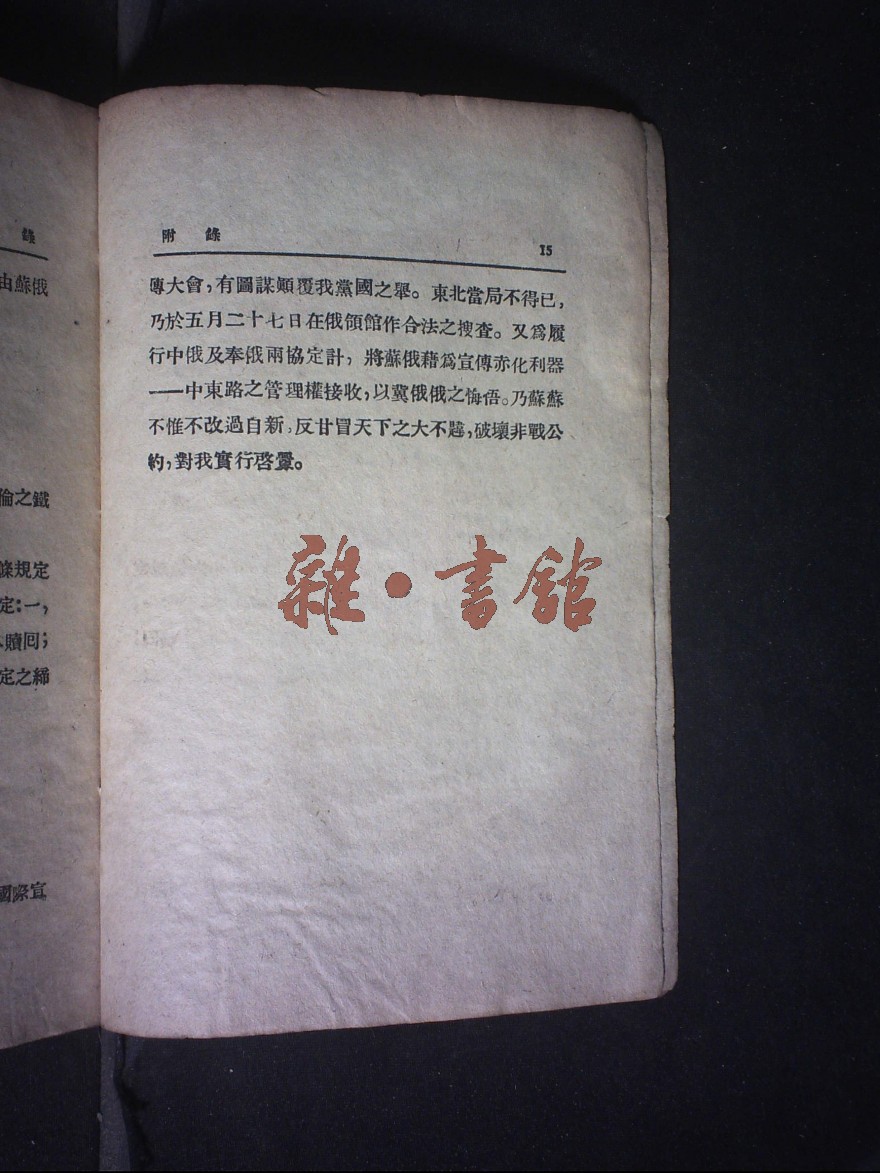 錄
由蘇俄
倫之鐵
條規定
定：一，
贖回；
定之締
國際宣
附 錄
15
傳大會，有圖謀顚覆我黨國之舉。東北當局不得已，
乃於五月二十七日在俄領館作合法之搜查。又爲履
行中俄及奉俄兩協定計，將蘇俄藉爲宣傳赤化利器
——中東路之管理權接收，以冀俄俄之悔悟。乃蘇蘇
不惟不改過自新，反甘冒天下之大不韙，破壞非戰公
約，對我實行啓釁。
雜·書館